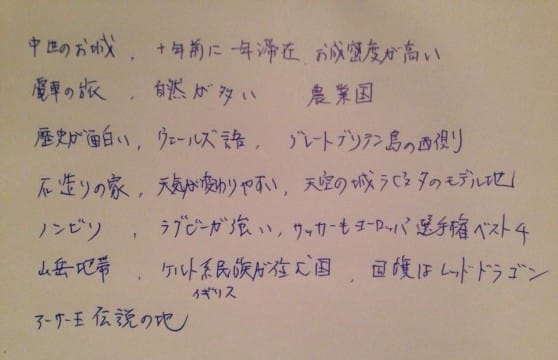 中世のお城、十年前に一年滞在 お城密度が高い
電車の旅、自然が多い 農業国
歴史が面白い、ウェールズ語、グレートブリテン島の西側
石造りの家、天気が変わりやすい、天空の城ラピュタのモデル地
ノンビリ、ラグビーが強い、サッカーもヨーロッパ選手権ベスト4
山岳地帯、ケルト系民族が住む国、国旗はレッドドラゴン
イギリス
アーサー王伝説の地